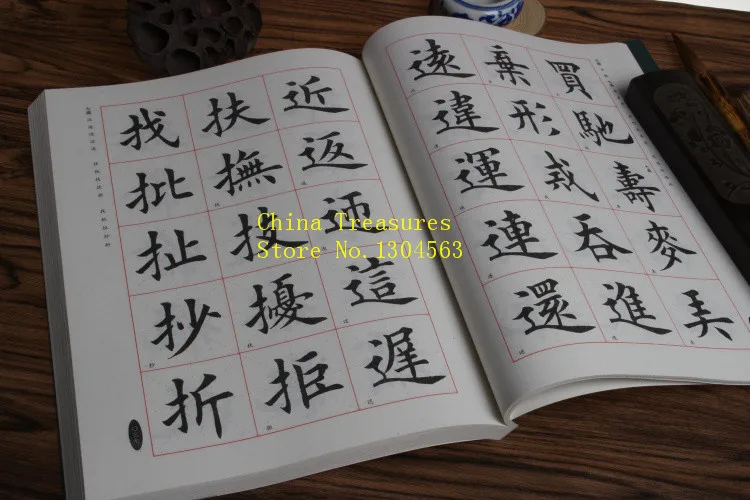 買
馳
壽
麥
棄
形
戒
吞
進
遠
違
運
連
還
近
返
這
遲
扶
撫
技
擾
拒
找
批
扯
抄
折
China Treasures
Store No.1304563